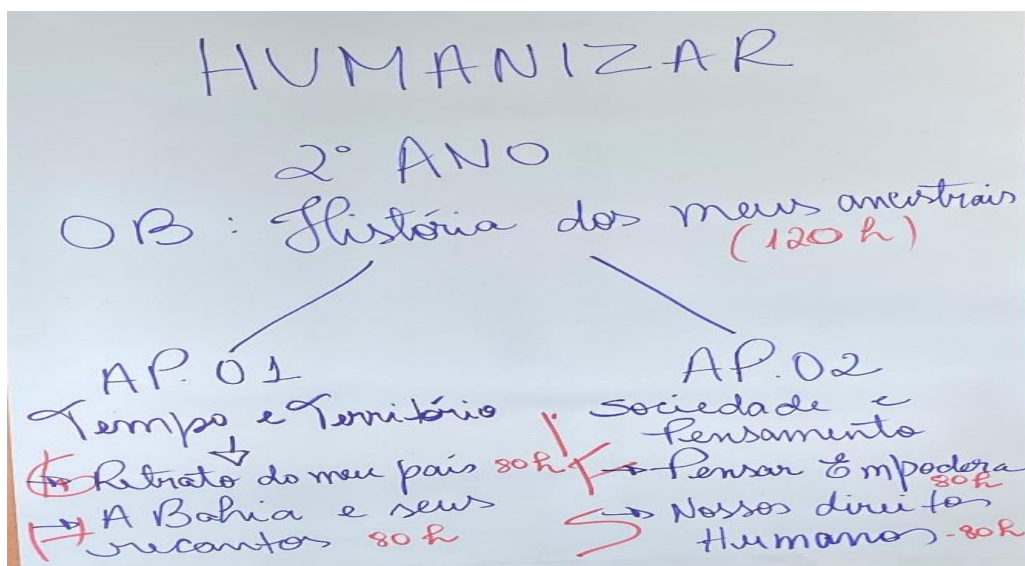 HUMANIZAR
2º ANO
OB: História dos meus ancestrais
(120h)
AP. 01
Tempo e Território
→ Retrato do meu país 80h
→ A Bahia e seus
recantos 80h
AP. 02
Sociedade e
Pensamento
→ Pensar Empodera
80h
→ Nossos direitos
Humanos - 80h